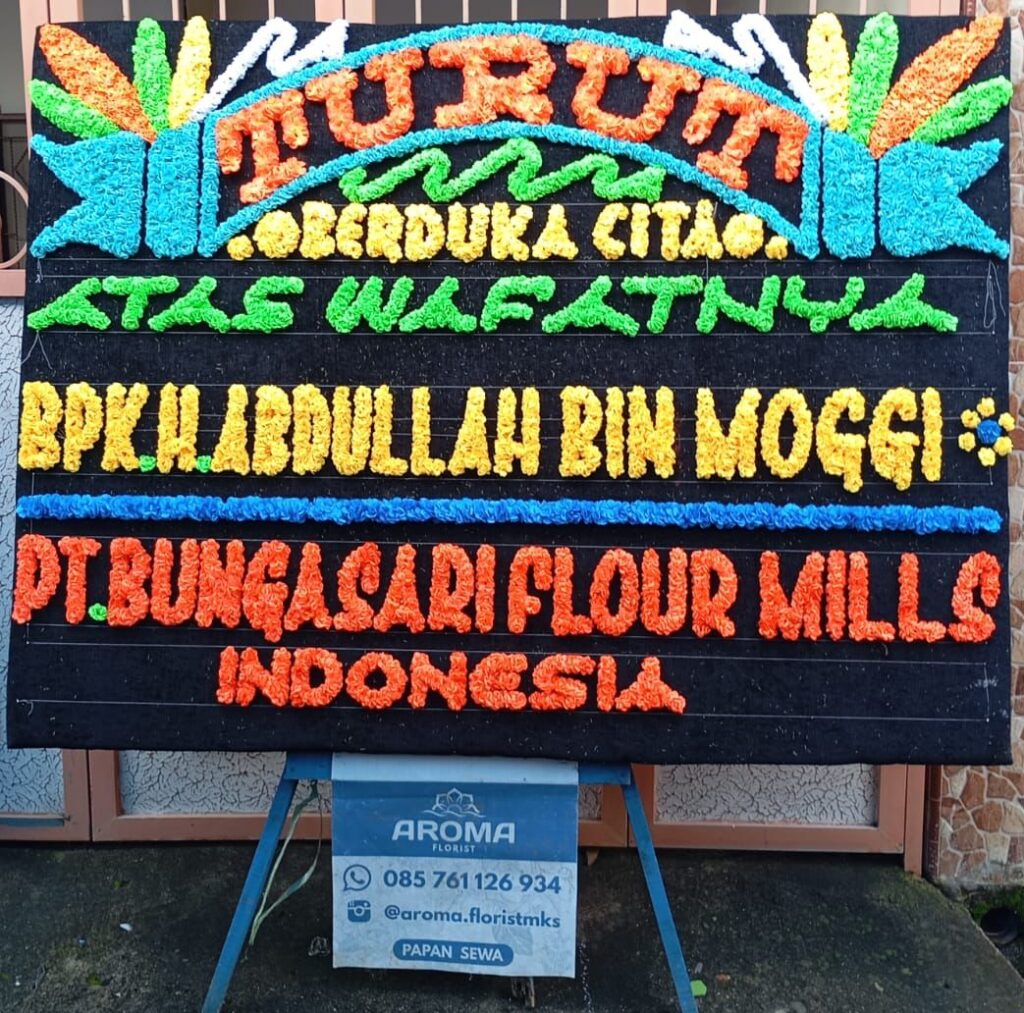 TURUT
BERDUKA CITA
ATAS WAFATNYA
BPK.H.ABDULLAH BIN MOGGI
PT.BUNGASARI FLOUR MILLS
INDONESIA
AROMA
FLORIST
085 761 126 934
@aroma.floristmks
PAPAN SEWA